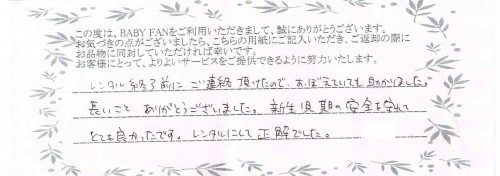 この度は、BABY FANをご利用いただきまして、誠にありがとうございます。
お気づきの点がございましたら、こちらの用紙にご記入いただき、ご返却の際に
お品物に同封していただければ幸いです。
お客様にとって、よりよいサービスをご提供できるように努力いたします。
レンタル終了前にご連絡頂けたので、おぼえていても助かりました。
長いことありがとうございました。新生児期の安全を守れて
とても良かったです。レンタルにして正解でした。